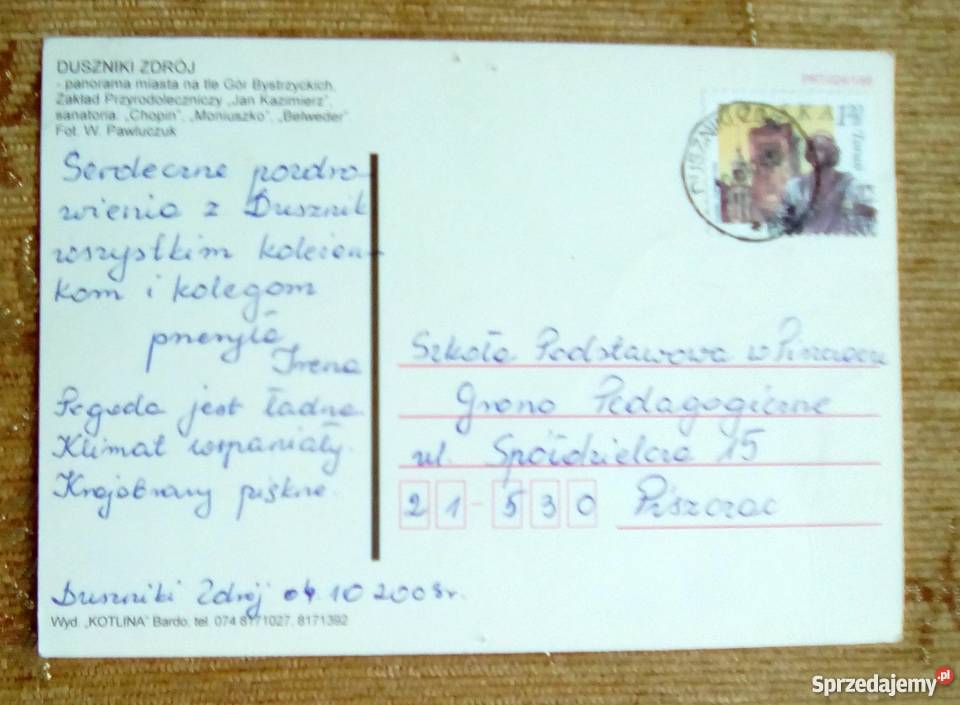 DUSZNIKI ZDRÓJ
- panorama miasta na tle Gór Bystrzyckich.
Zakład Przyrodoleczniczy „Jan Kazimierz”,
sanatoria: „Chopin”, „Moniuszko”, „Belweder”
Fot. W. Pawluczuk
Serdeczne pozdro-
wienia z Dusznik
wszystkim koleżan-
kom i kolegom
przesyła
Irena
Pogoda jest ładna
Klimat wspaniały.
Krajobrazy piękne.
Duszniki Zdrój 04.10 2008r.
Wyd. „KOTLINA” Bardo, tel. 074 8171027, 8171392
POLSKA 1,30
Toruń
DUSZNIKI
Szkoła Podstawowa w Piszczacu
Grono Pedagogiczne
ul. Spółdzielcza 15
21-530 Piszczac
Sprzedajemy.pl